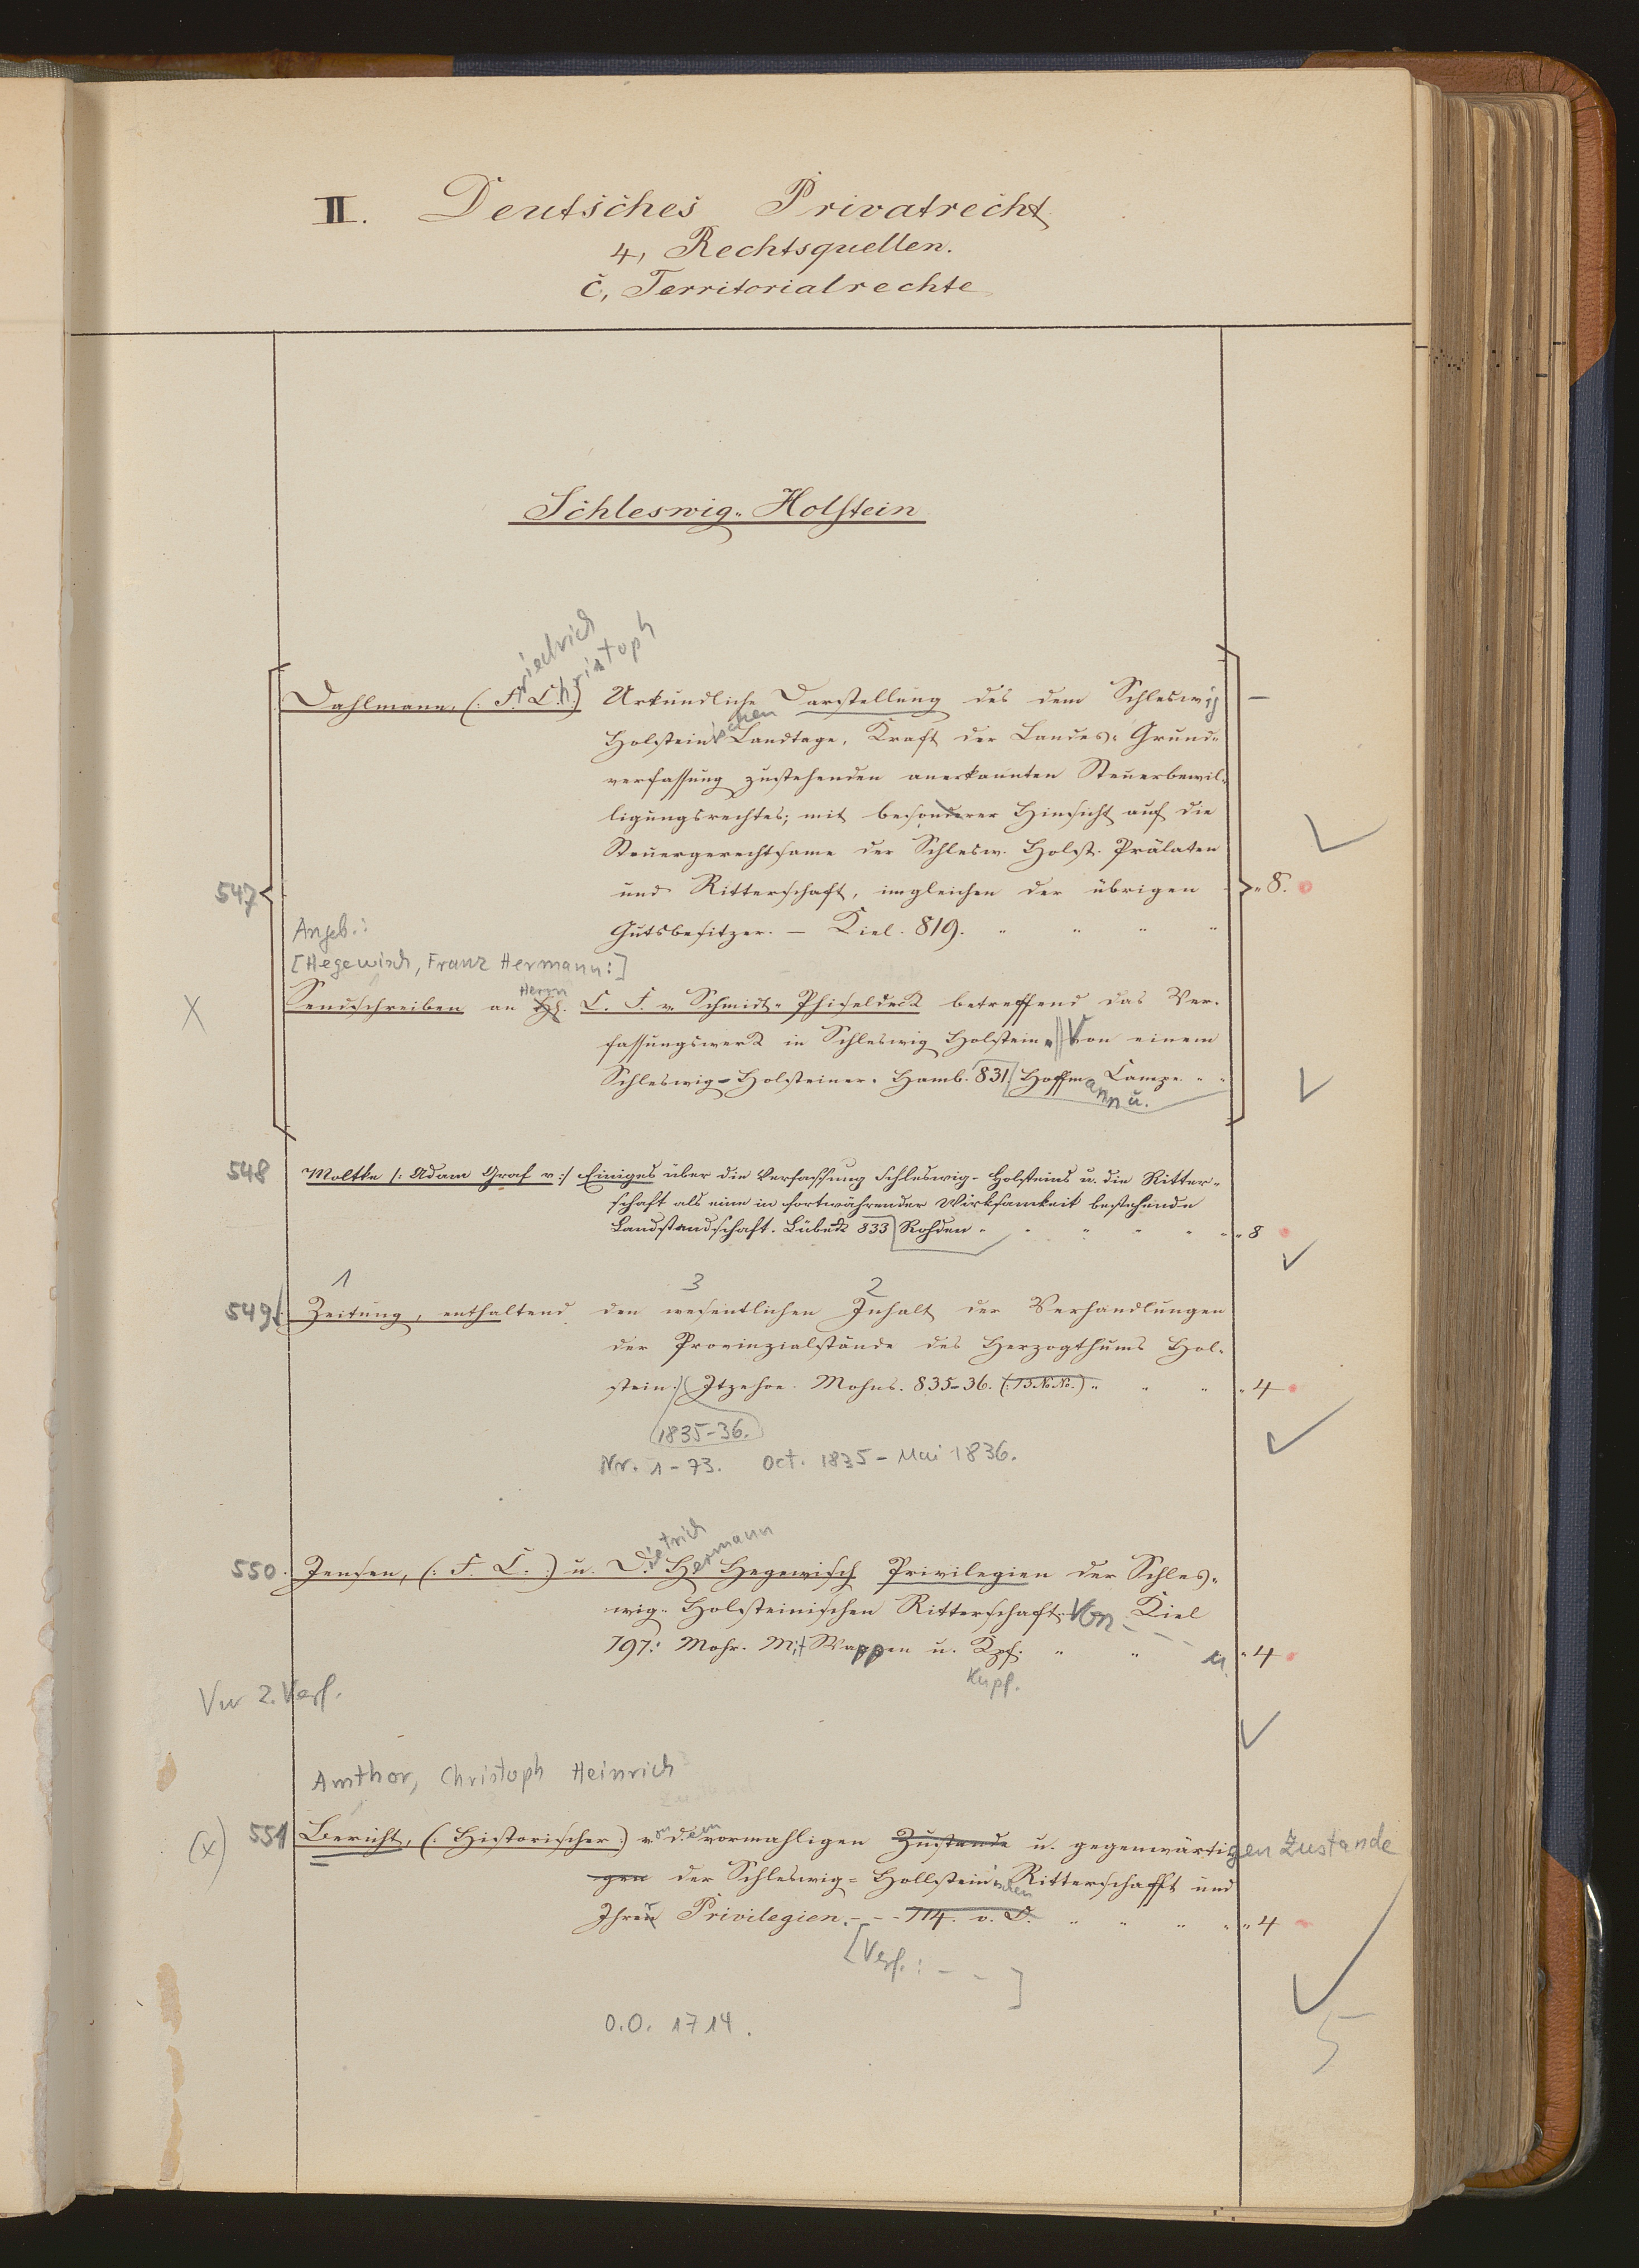 II. Deutsches Privatrecht
4, Rechtsquellen.
c, Territorialrechte
Schleswig-Holstein
Friedrich Christoph
Dahlmann, (: F. C. :) Urkundliche Darstellung des dem Schleswig
Holsteinischen Landtage, Kraft der Landes-Grund-
verfassung zustehenden anerkannten Steuerbewil-
ligungsrechtes; mit besonderer Hinsicht auf die
Steuergerechtsame der Schlesw. Holst. Prälaten
547 und Ritterschaft, imgleichen der übrigen „ 8.
Angeb.: Gutsbesitzer. — Kiel. 819. „ „ „ „
[Hegewisch, Franz Hermann:]
X Sendschreiben an Herrn C. F. v. Schmidt-Phiseldeck betreffend das Ver-
fassungswerk in Schleswig Holstein. Von einem
Schleswig-Holsteiner. Hamb. 831. Hoffmann u. Campe. „ „
548 Moltke /: Adam Graf v :/ Einiges über die Verfassung Schleswig-Holsteins u. die Ritter-
schaft als eine in fortwährender Wirksamkeit bestehende
Landstandschaft. Lübeck 833 Rohden „ „ „ „ „ „ 8
1 3 2
549. Zeitung, enthaltend den wesentlichen Inhalt der Verhandlungen
der Provinzialstände des Herzogthums Hol-
stein. Itzehoe. Mohns. 835-36. (: 73 No No. :) „ „ „ „ 4
1835-36.
Nr. 1-73. Oct. 1835 - Mai 1836.
550. Jensen, (: F. C. :) u. Dietrich Hermann Hegewisch Privilegien der Schles-
wig-Holsteinischen Ritterschaft. Von - - - Kiel
797: Mohr. Mit Wappen u. Kpf. „ „ u. „ 4
Kupf.
Vw 2. Verf.
Amthor, Christoph Heinrich
(x) 551 Bericht, (: Historischer :) von dem vormahligen Zustande u. gegenwärtigen Zustande
gen der Schleswig-Hollsteinischen Ritterschafft und
Ihren Privilegien. - - - 714. v. D. „ „ „ „ „ 4
[Verf.: - - ]
O.O. 1714.
5